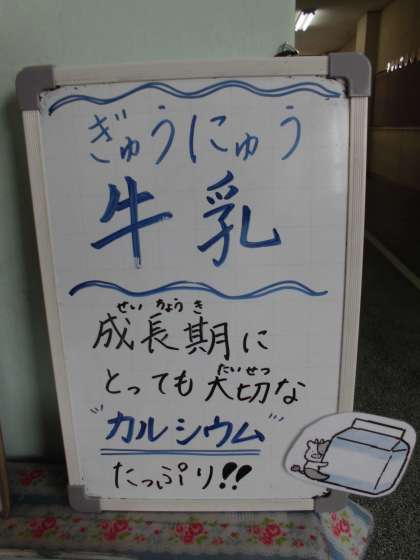 ぎゅうにゅう
牛乳
せいちょうき
成長期に
たいせつ
とっても大切な
"カルシウム"
たっぷり!!